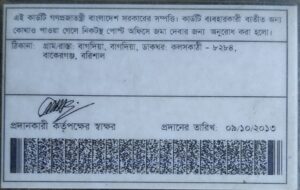 এই কার্ডটি গণপ্রজাতন্ত্রী বাংলাদেশ সরকারের সম্পত্তি। কার্ডটি ব্যবহারকারী ব্যতীত অন্য
কোথাও পাওয়া গেলে নিকটস্থ পোস্ট অফিসে জমা দেবার জন্য অনুরোধ করা হলো।
ঠিকানা: গ্রাম/রাস্তা: বাগদিয়া, বাগদিয়া, ডাকঘর: কলসকাঠী - ৮২৮৪,
বাকেরগঞ্জ, বরিশাল
প্রদানকারী কর্তৃপক্ষের স্বাক্ষর
প্রদানের তারিখ: ০৯/১০/২০১৩